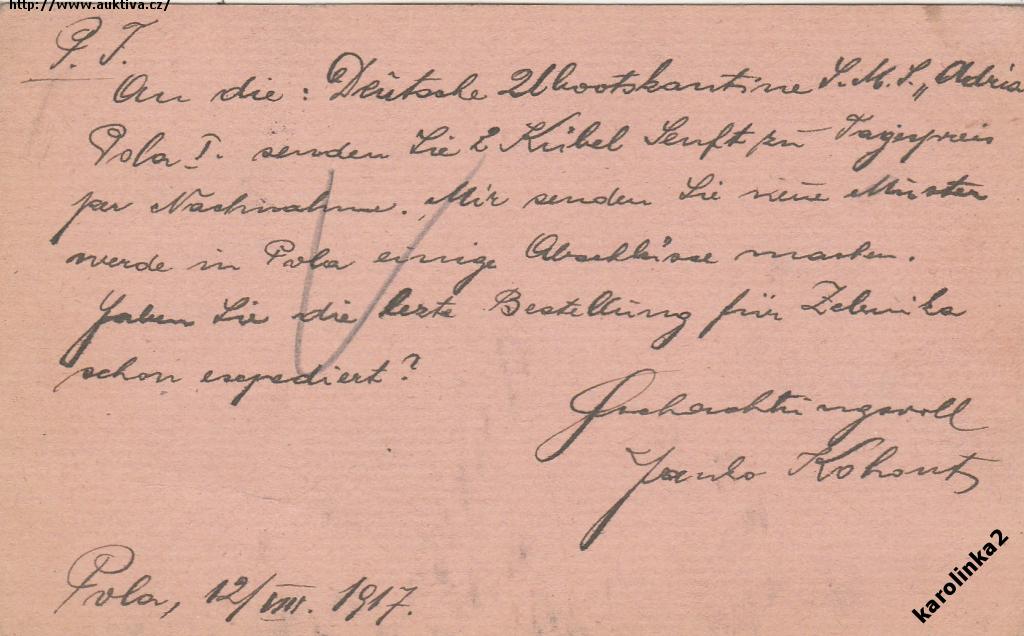 http://www.auktiva.cz/
P. T.
An die: Deutsche Ubootskantine S.M.S. „Adria
Pola I. senden Sie 2 Kübel Senft zu Tagespreis
per Nachnahme. Mir senden Sie neue Muster
werde in Pola einige Abschlüsse machen.
Haben Sie die lezte Bestellung für Zelenika
schon expediert?
Hochachtungsvoll
Janko Kohout
Pola, 12/VIII. 1917.
karolinka2